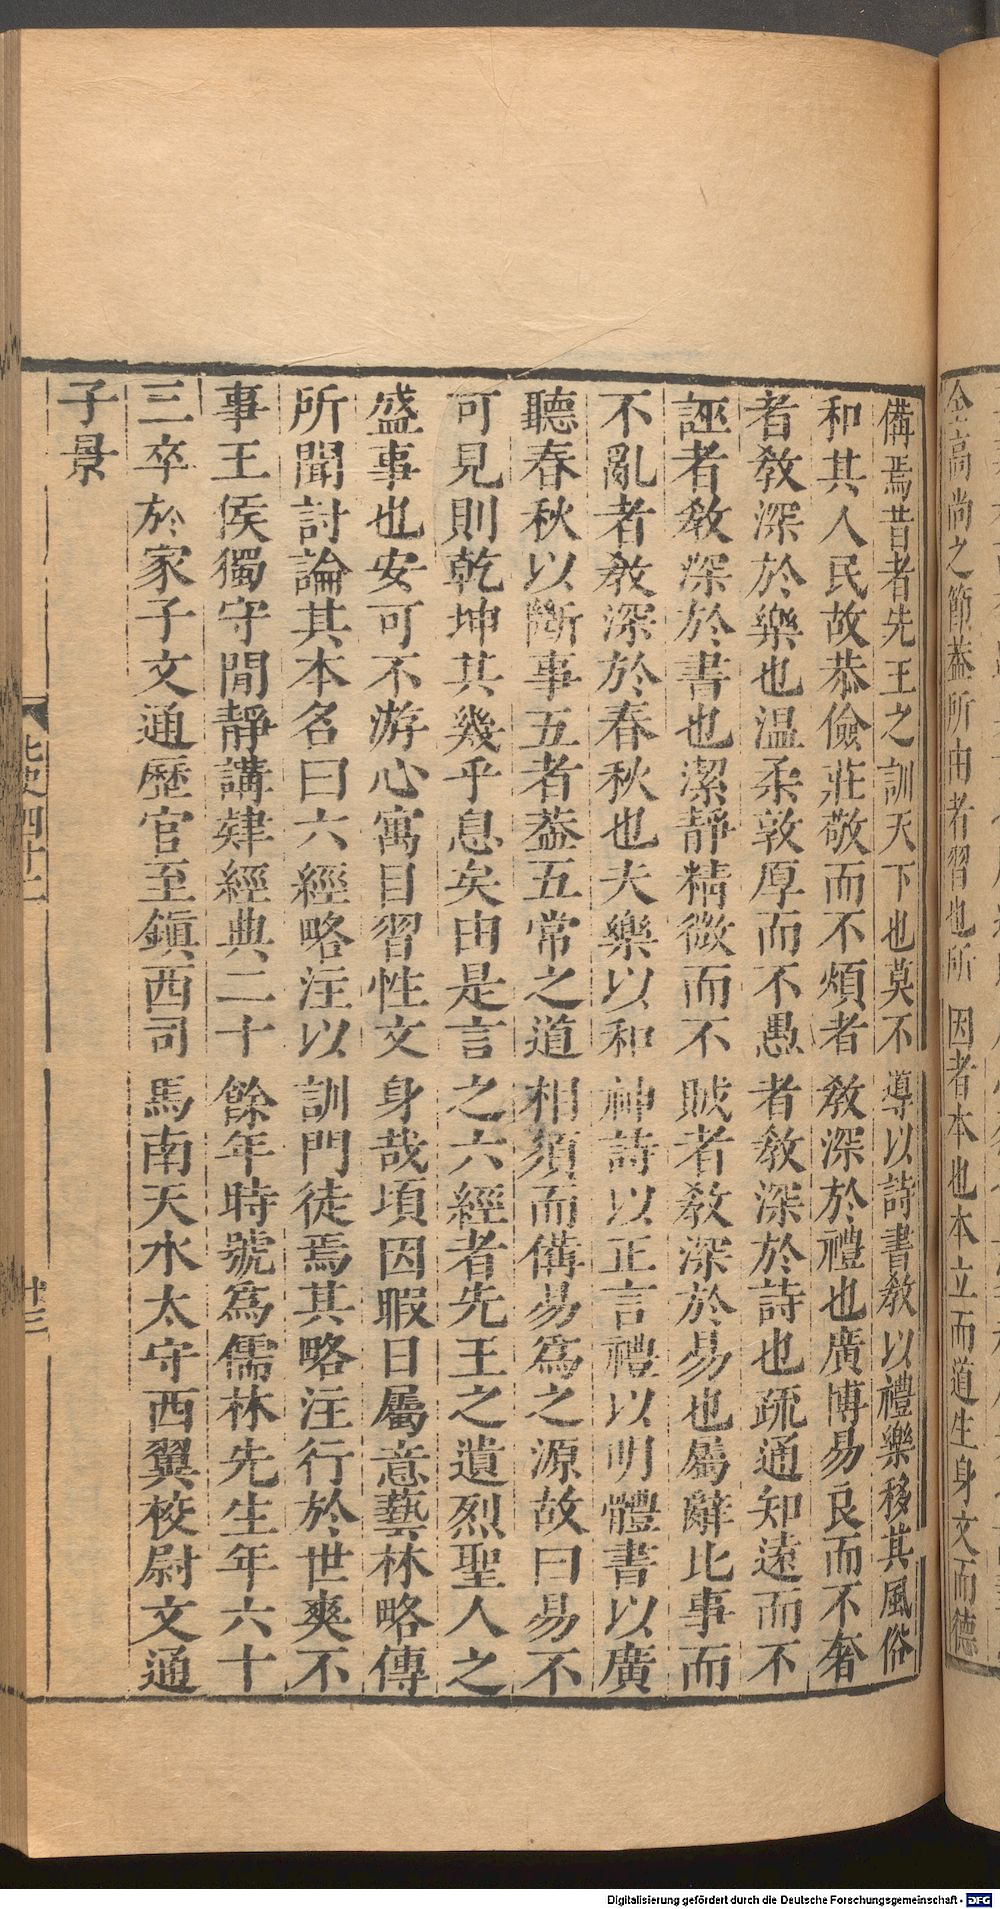 全高尚之節葢所由者習也所因者本也本立而道生身文而德
備焉昔者先王之訓天下也莫不導以詩書敎以禮樂移其風俗
和其人民故恭儉莊敬而不煩者敎深於禮也廣博易良而不奢
者敎深於樂也温柔敦厚而不愚者敎深於詩也疏通知遠而不
誣者敎深於書也潔靜精微而不賊者敎深於易也屬辭比事而
不亂者敎深於春秋也夫樂以和神詩以正言禮以明體書以廣
聽春秋以斷事五者葢五常之道相須而備易爲之源故曰易不
可見則乾坤其幾乎息矣由是言之六經者先王之遺烈聖人之
盛事也安可不游心寓目習性文身哉頃因暇日屬意藝林略傳
所聞討論其本名曰六經略注以訓門徒焉其略注行於世爽不
事王侯獨守閒靜講肄經典二十餘年時號爲儒林先生年六十
三卒於家子文通歷官至鎭西司馬南天水太守西翼校尉文通
子景
北史四十二
廿三
Digitalisierung gefördert durch die Deutsche Forschungsgemeinschaft - DFG